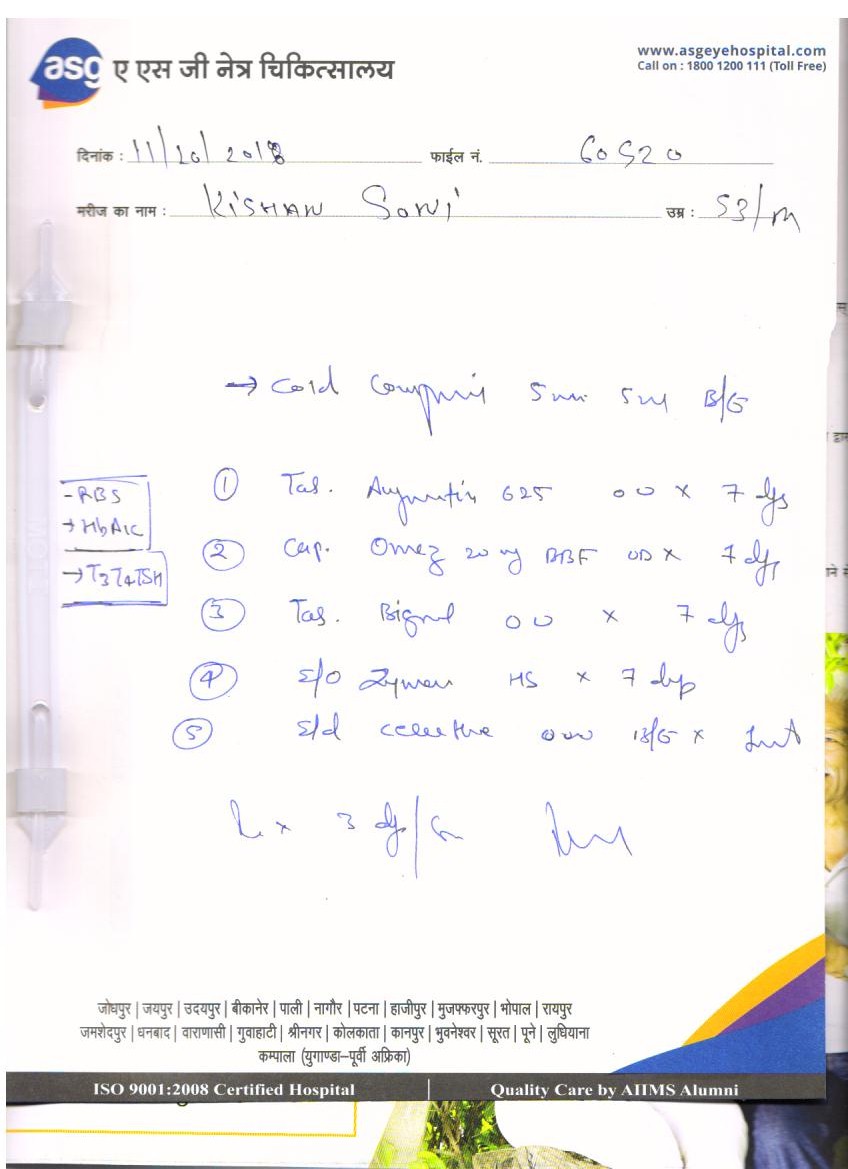 asg ए एस जी नेत्र चिकित्सालय
www.asgeyehospital.com
Call on : 1800 1200 111 (Toll Free)
दिनांक : 11/20/2018 फाईल नं. 60520
मरीज का नाम : KISHAN SONI उम्र : 53/M
→ Cold 5 B/E
- RBS
→ HbA1C
→ T3 T4 TSH
① Tab. Augmentin 625 x 7 dys
② Cap. Omez 20 mg BBF OD x 7 dys
③ Tab. x 7 dys
④ E/O HS x 7
⑤ E/d B/E x
x 3
जोधपुर | जयपुर | उदयपुर | बीकानेर | पाली | नागौर | पटना | हाजीपुर | मुजफ्फरपुर | भोपाल | रायपुर
जमशेदपुर | धनबाद | वाराणासी | गुवाहाटी | श्रीनगर | कोलकाता | कानपुर | भुवनेश्वर | सूरत | पूने | लुधियाना
कम्पाला (युगाण्डा–पूर्वी अफ्रिका)
ISO 9001:2008 Certified Hospital | Quality Care by AIIMS Alumni